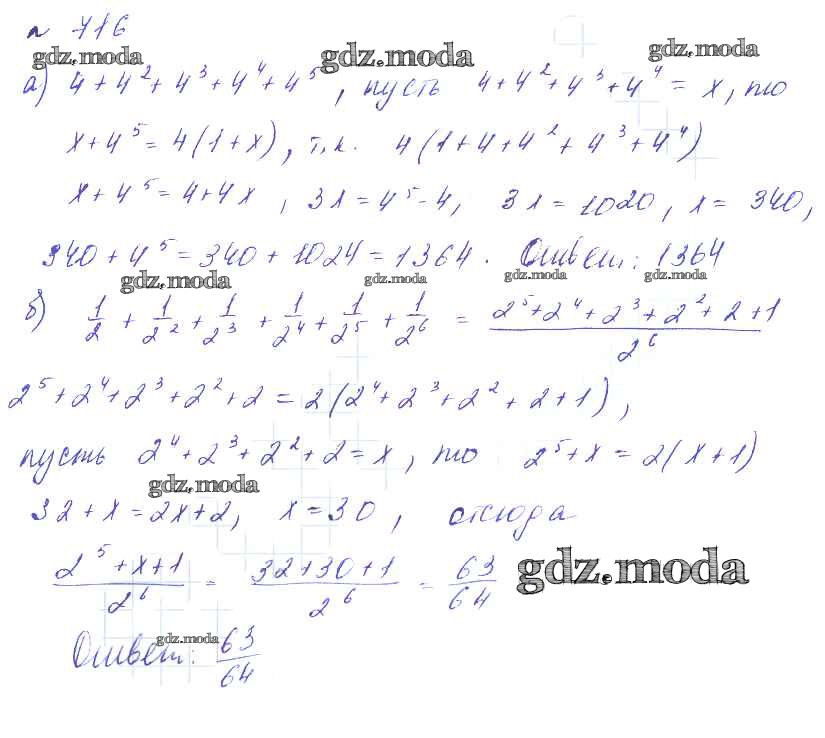 № 716
gdz.moda gdz.moda gdz.moda
а) 4 + 4² + 4³ + 4⁴ + 4⁵, пусть 4 + 4² + 4³ + 4⁴ = x, то
x + 4⁵ = 4(1 + x), т.к. 4(1 + 4 + 4² + 4³ + 4⁴)
x + 4⁵ = 4 + 4x, 3x = 4⁵ - 4, 3x = 1020, x = 340,
340 + 4⁵ = 340 + 1024 = 1364. Ответ: 1364
gdz.moda gdz.moda gdz.moda gdz.moda
б) 1/2 + 1/2² + 1/2³ + 1/2⁴ + 1/2⁵ + 1/2⁶ = (2⁵ + 2⁴ + 2³ + 2² + 2 + 1)/2⁶
2⁵ + 2⁴ + 2³ + 2² + 2 = 2(2⁴ + 2³ + 2² + 2 + 1),
пусть 2⁴ + 2³ + 2² + 2 = x, то 2⁵ + x = 2(x + 1)
gdz.moda
32 + x = 2x + 2, x = 30, отсюда
(2⁵ + x + 1)/2⁶ = (32 + 30 + 1)/2⁶ = 63/64
gdz.moda
gdz.moda
Ответ: 63/64